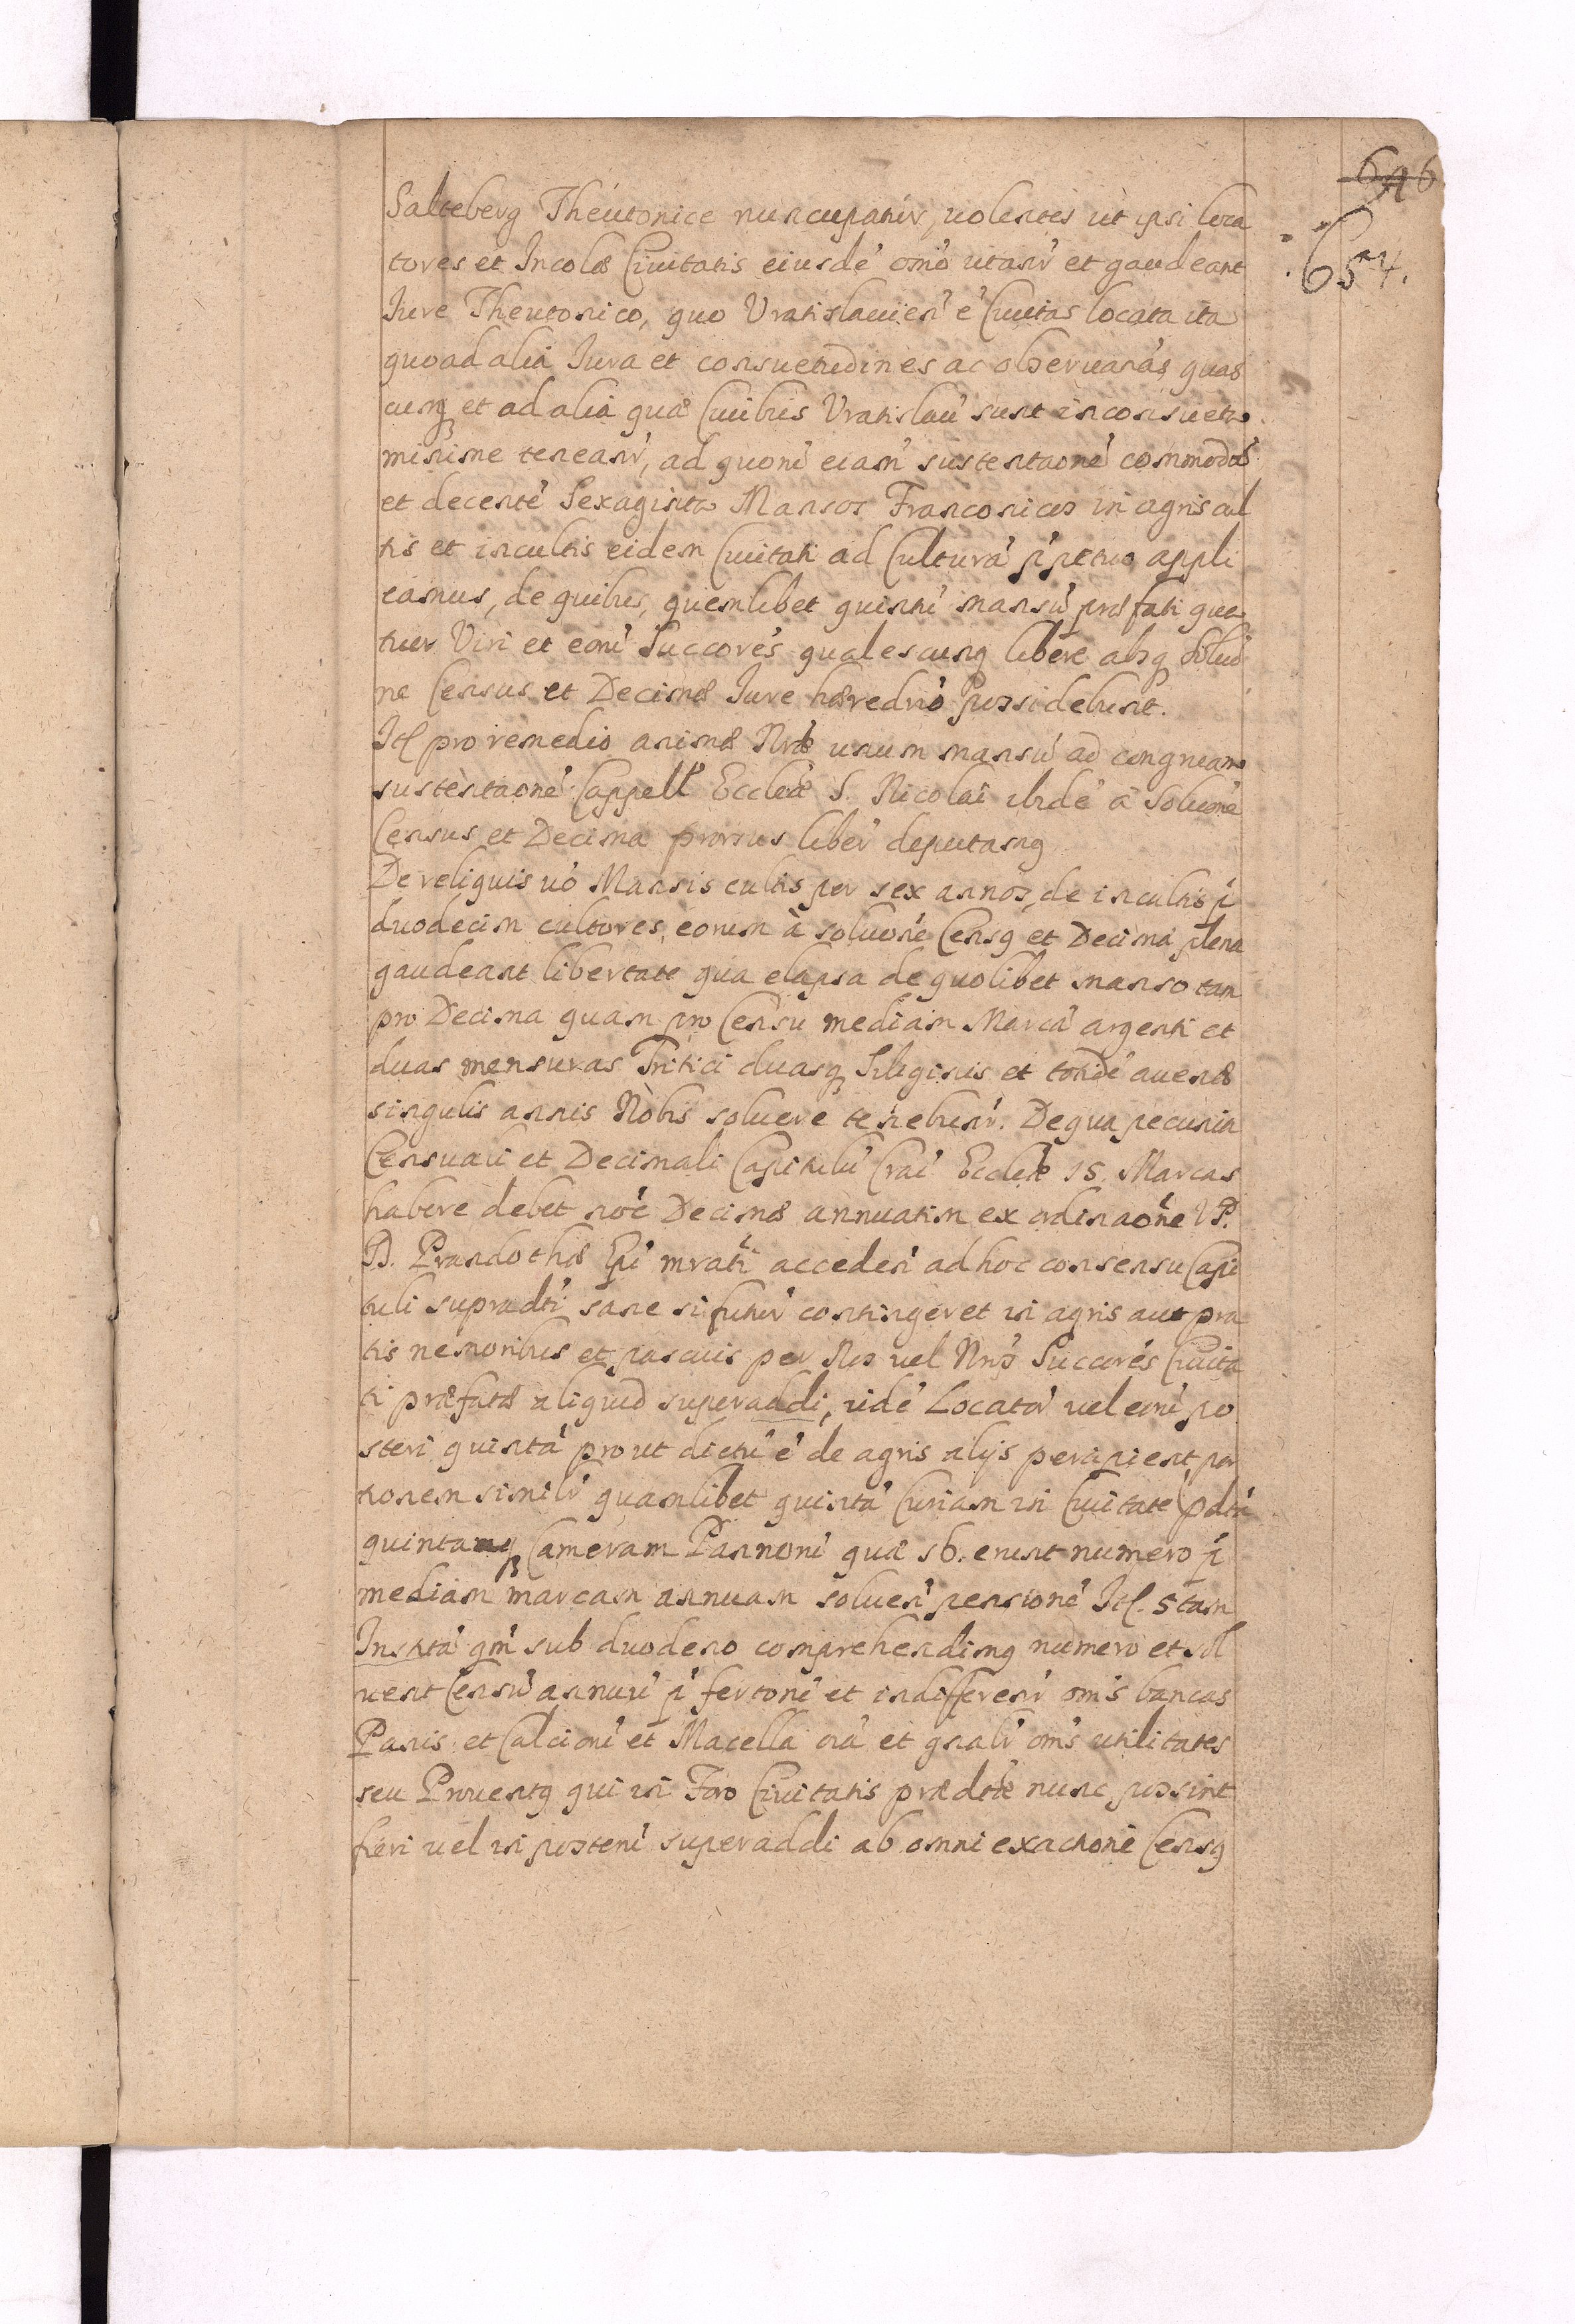 646
654.
Salteberg Theutonice nuncupatur, uolentes ut ipsi loca
tores et Incolæ Ciuitatis eiusdẽ omõ utant᷑ et gaudeant
Iure Theutonico, quo Vratislauien̄ ẽ Ciuitas locata ita
quoad alia Iura et consuetudines ac obseruanãs quas
cunq; et ad alia quæ Ciuibus Vratislau̅ sunt inconsueta
minime teneant᷑, ad quorũ eciam̃ sustentaonẽ commodã
et decentẽ Sexaginta Mansos Franconicos in agris cul
tis et incultis eidem Ciuitati ad Culturã p̃petuo appli
camus, de quibus, quemlibet quintũ mansũ præfati qua
tuor Viri et eorũ Succorẽs qualescunq; libere absq; Soluõ
ne Census et Decimæ Iure hæredrio Possidebunt.
Itl pro remedio animæ Nræ unum mansũ ad congruam
sustẽtaonẽ Cappell̃ Eccl̃æ S. Nicolai ibidẽ a Soluonẽ
Census et Decima prorsus liber̃ deputamq
De reliquis uõ Mansis cultis per sex annos, de incultis p̃
duodecim cultores, eorum à soluonẽ Censq et Decima plena
gaudeant libertate qua elapsa de quolibet manso tam
pro Decima quam pro Censu mediam Marcã argenti et
duas mensuras Tritici duasq; Siliginis et totidẽ auenæ
singulis annis Nobis soluere tenebunt᷑. De qua pecunia
Censuali et Decimali Capitulũ Craĩ Eccl̃æ 15 Marcas
habere debet noẽ Decimæ annuatim ex ordinaonẽ V P.
D. Prandothæ Epĩ mratĩ acceden̄ ad hoc consensu Capi
tuli supradtĩ sane si futur̃ contingeret in agris aut pra
tis nemoribus et pascuis per Nos uel Nrõs Succorẽs Ciuita
ti præfatæ aliquid superaddi, uidẽ Locator̃ uel eorũ po
steri quintã prout dictũ ẽ de agris alijs percipient por
tionem similit̃ quamlibet quintã Curiam in Ciuitate pdtã
quintamq; Cameram Pannorũ quæ 56. erunt numero p̃
mediam marcam annuam soluen̄ pensionẽ Itl. 5tam
Institã qm̃ sub duodeno comprehendimq numero et sol
uent Censũ annuũ p̃ fertonẽ et indifferent᷑ oms̃ bancas
Panis et Calciorũ et Macella oiã et gñalit̃ oms̃ utilitates
seu Prouentq qui in Foro Ciuitatis prædtæ nunc possint
fieri uel in posterũ superaddi ab omni exactionẽ Censq